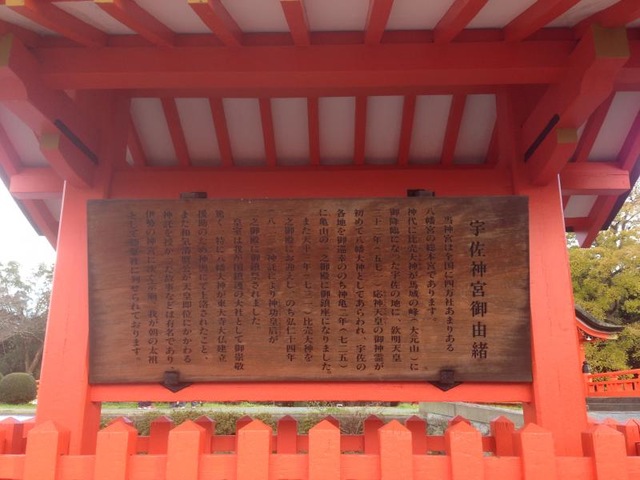 宇佐神宮御由緒
当神宮は全国に四万社あまりある
八幡宮の総本宮であります。
神代に比売大神が馬城の峰(大元山)に
御降臨になった宇佐の地に、欽明天皇
三十二年(五七一)応神天皇の御神霊が
初めて八幡大神としてあらわれ、宇佐の
各地を御巡幸ののち神亀二年(七二五)
に亀山の一之御殿に御鎮座になりました。
また天平三年(七三一)比売大神を
二之御殿にお迎えし、のち弘仁十四年
(八二三)神託により神功皇后が
三之御殿に御鎮祭されました。
皇室は我が国鎮護の大社として御崇敬
篤く、特に八幡大神が東大寺大仏建立
援助のため神輿にて上洛されたこと、
また和気清麻呂が天皇即位にかかわる
神託を授かった故事などは有名であり
伊勢の神宮につぐ宗廟、我が朝の太祖
として勅祭社に列せられております。